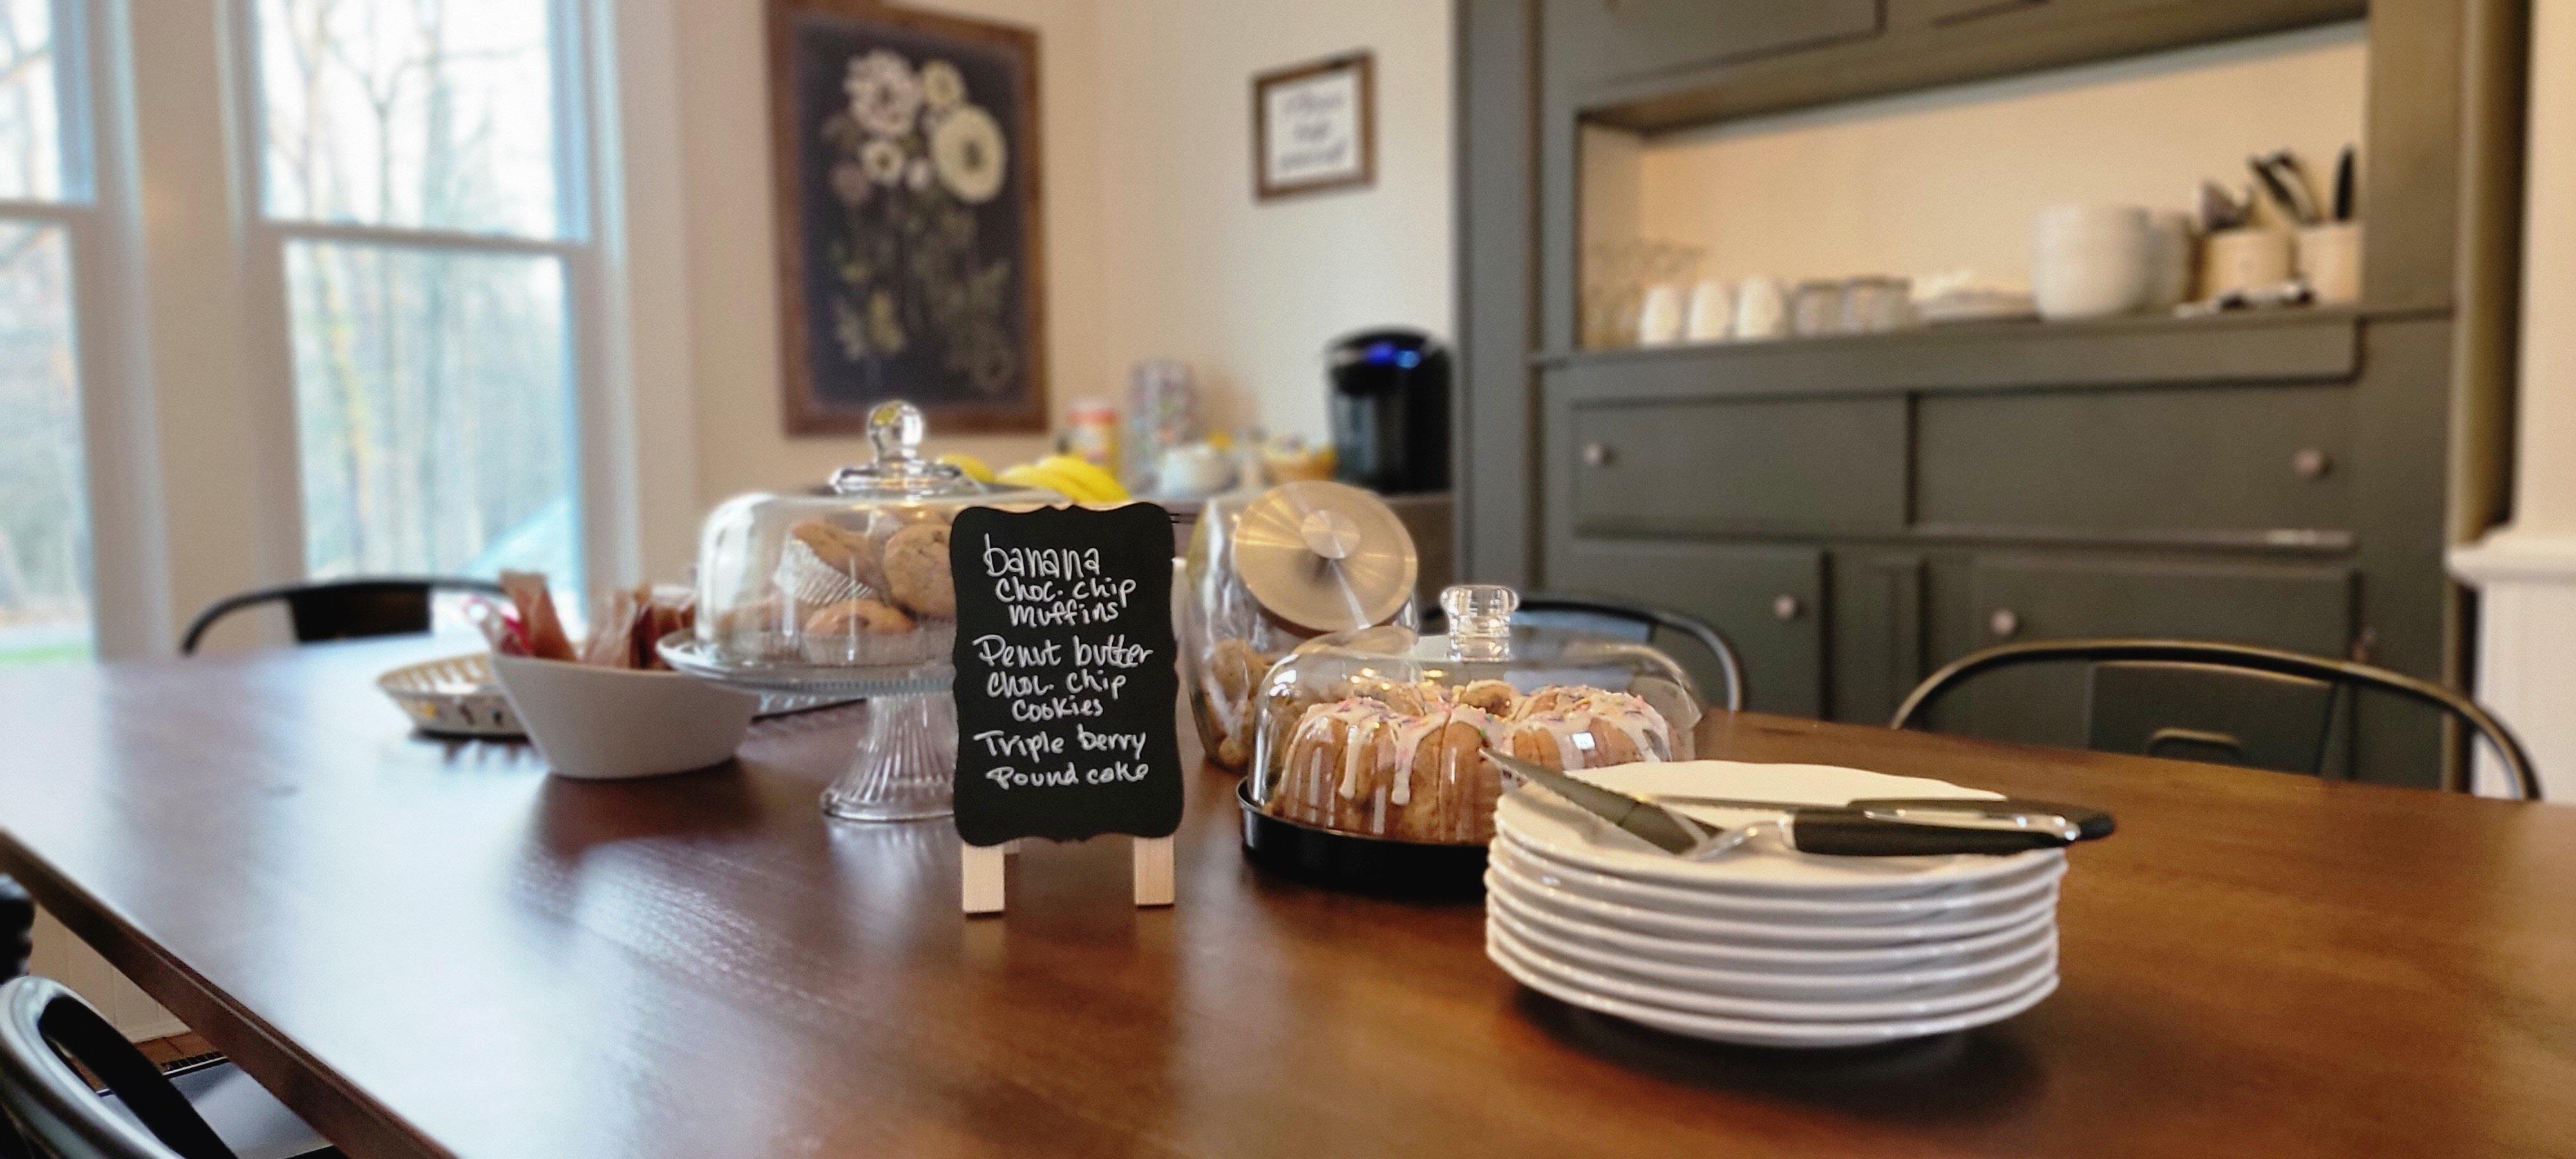 banana
choc. chip
muffins
Penut butter
choc. chip
cookies
Triple berry
Pound cake